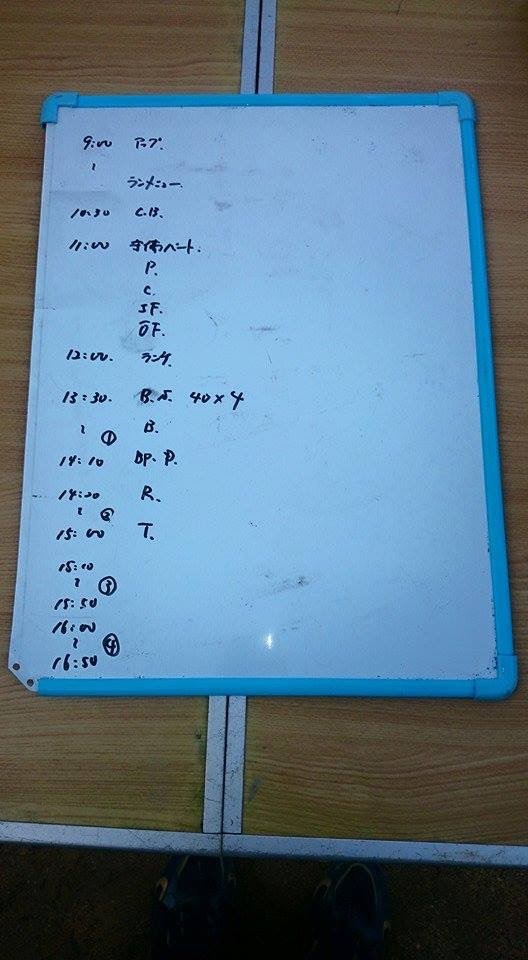 9:00 アップ.
〜
ランメニュー.
10:30 C.B.
11:00 守備ベート.
P.
C.
IF.
OF.
12:00. ランチ.
13:30. B.S. 40×4
〜 ① B.
14:10 BP. P.
14:20 R.
〜 ②
15:00 T.
15:10
〜 ③
15:50
16:00
〜 ④
16:50